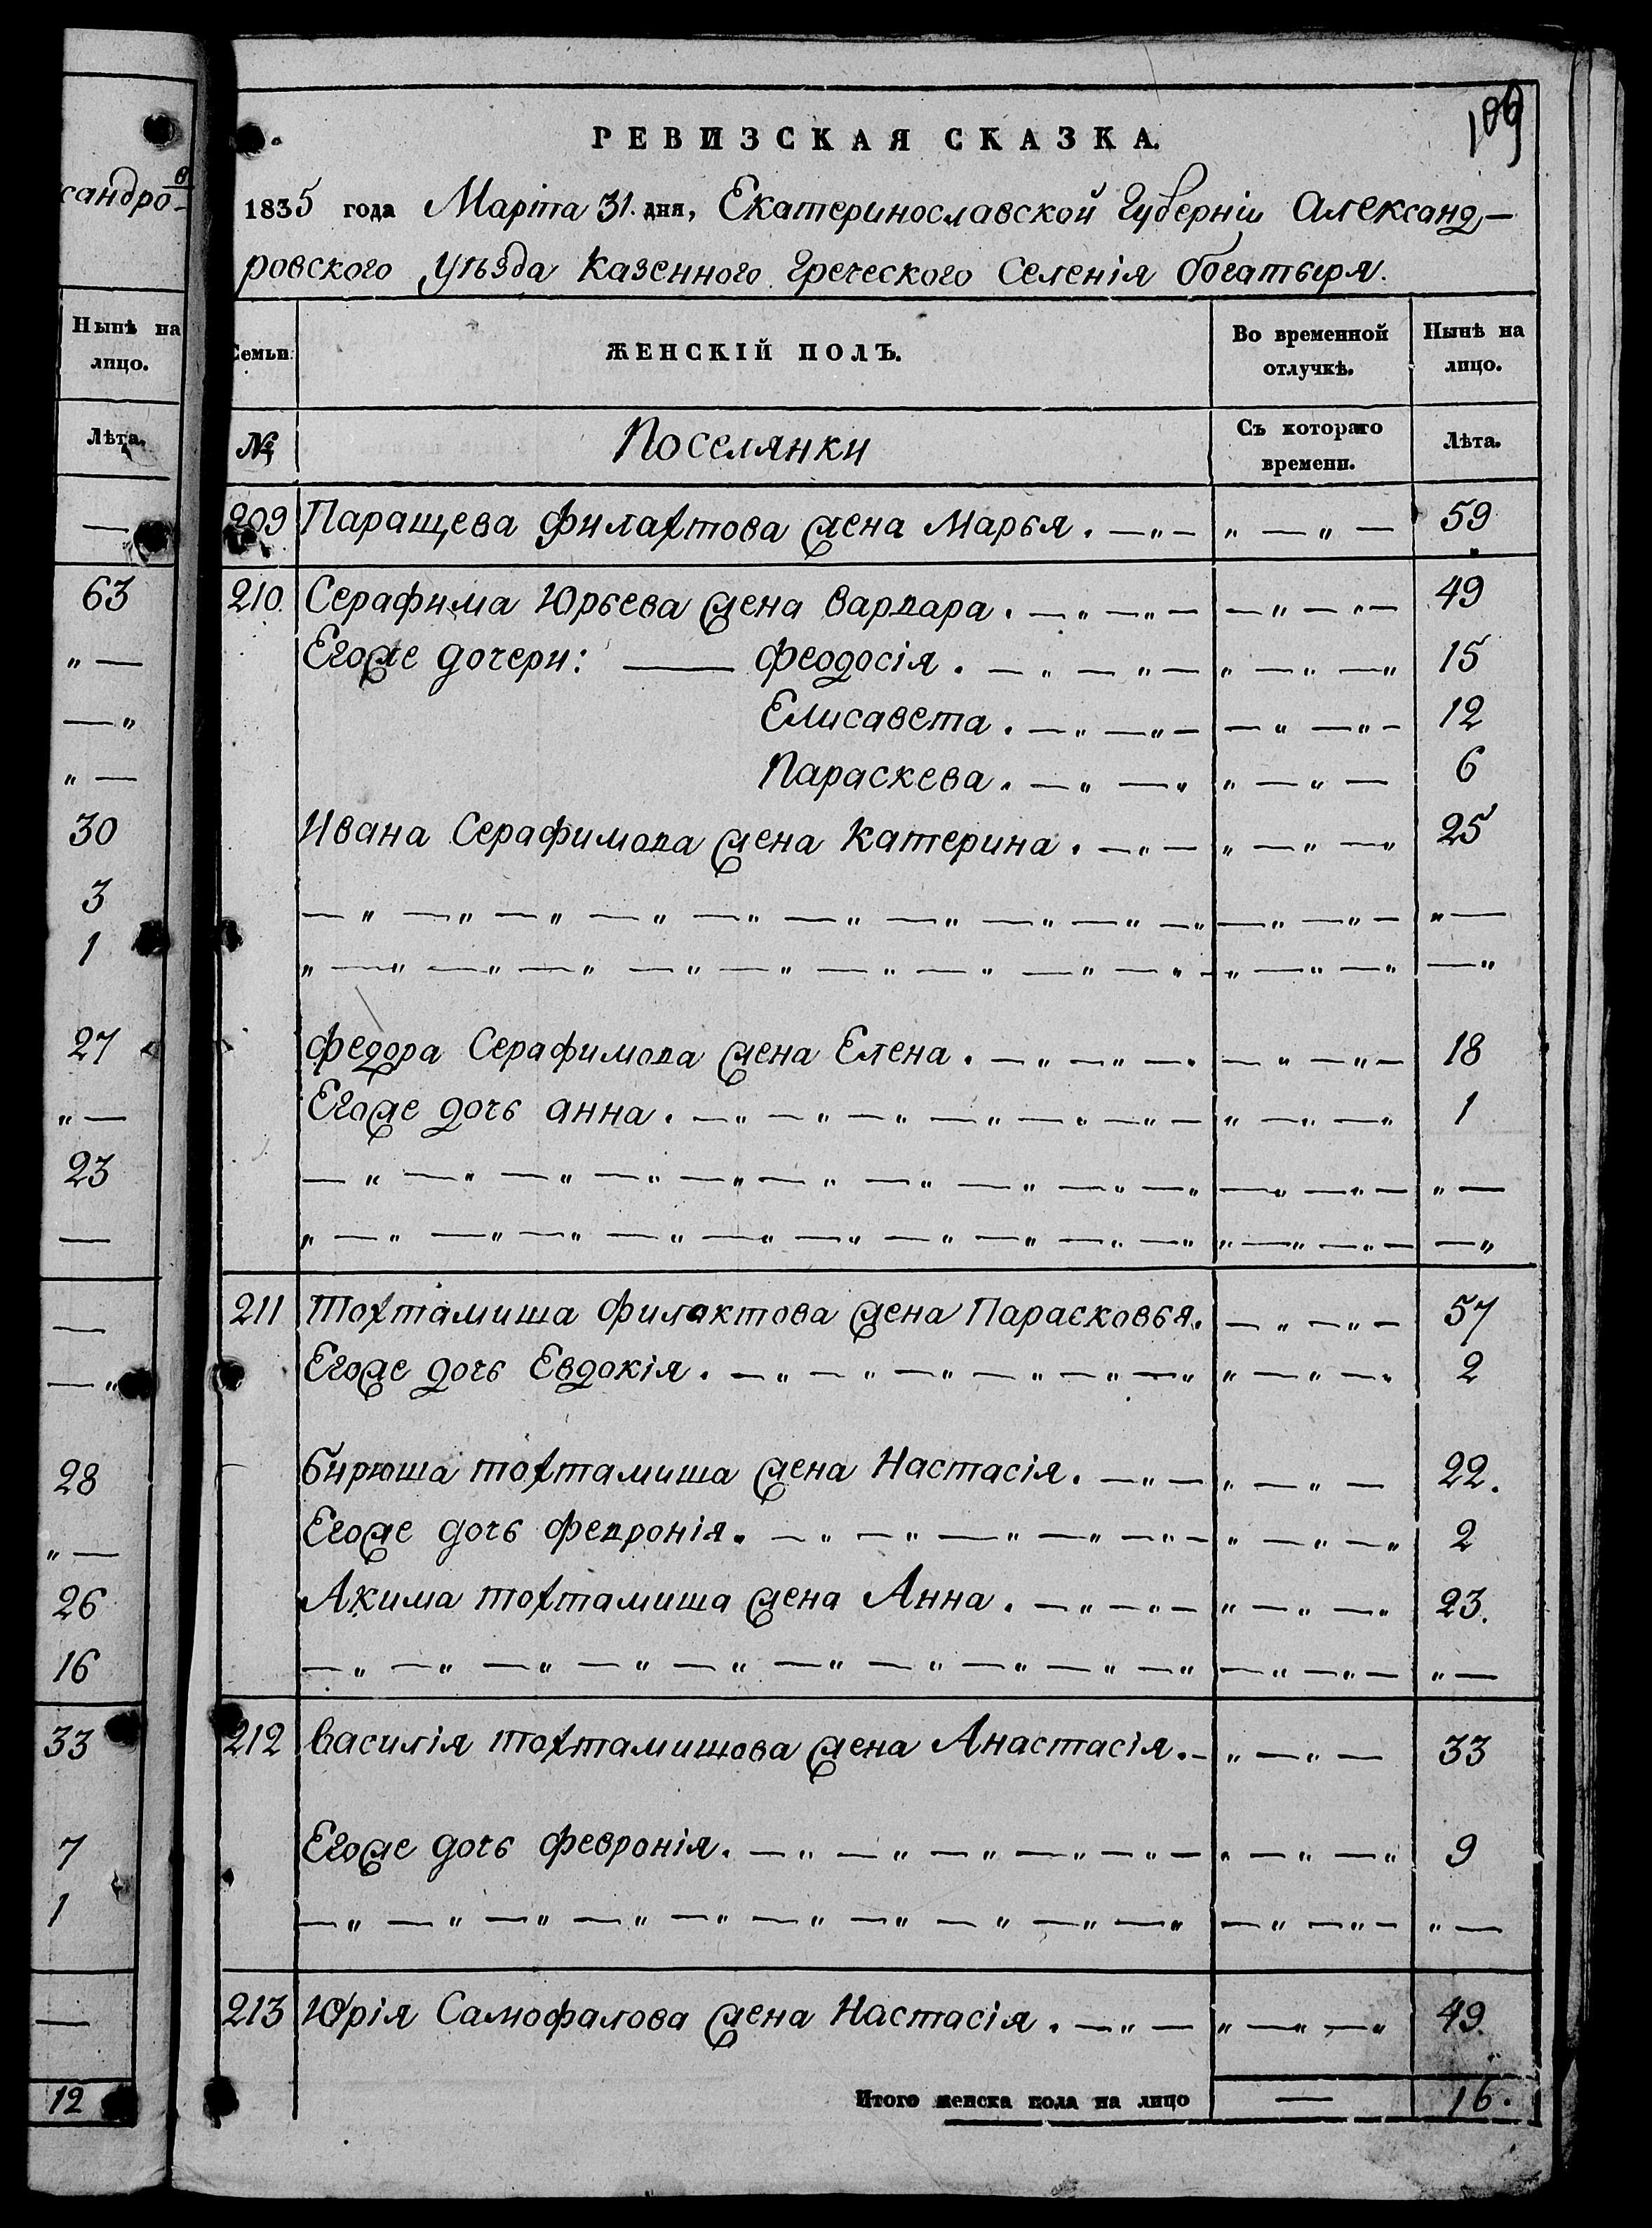 сандро-
в
Нынѣ на
лицо.
Лѣта.
—
63
" —
— "
" —
30
3
1
27
" —
23
—
—
— "
28
" —
26
16
33
7
1
—
12
109
РЕВИЗСКАЯ СКАЗКА.
1835 года Марта 31. дня, Екатеринославской Губерніи Александ-
ровского уѣзда Казенного Греческого Селенія Богатыря.
Семьи. ЖЕНСКІЙ ПОЛЪ. Во временной отлучкѣ. Нынѣ на лицо.
№ Поселянки Съ котораго времени. Лѣта.
209 Паращева Филахтова жена Марья. 59
210. Серафима Юрьева жена Варвара. 49
Егоже дочери: Феодосія. 15
Елисавета. 12
Параскева. 6
Ивана Серафимова жена Катерина. 25
Федора Серафимова жена Елена. 18
Егоже дочь Анна. 1
211 Тохтамиша Филактова жена Парасковья. 57
Егоже дочь Евдокія. 2
Бирюша Тохтамиша жена Настасія. 22.
Егоже дочь Февронія. 2
Акима Тохтамиша жена Анна. 23.
212 Василія Тохтамишова жена Анастасія. 33
Егоже дочь Февронія. 9
213 Юрія Самофалова жена Настасія. 49.
Итого женска пола на лицо — 16.